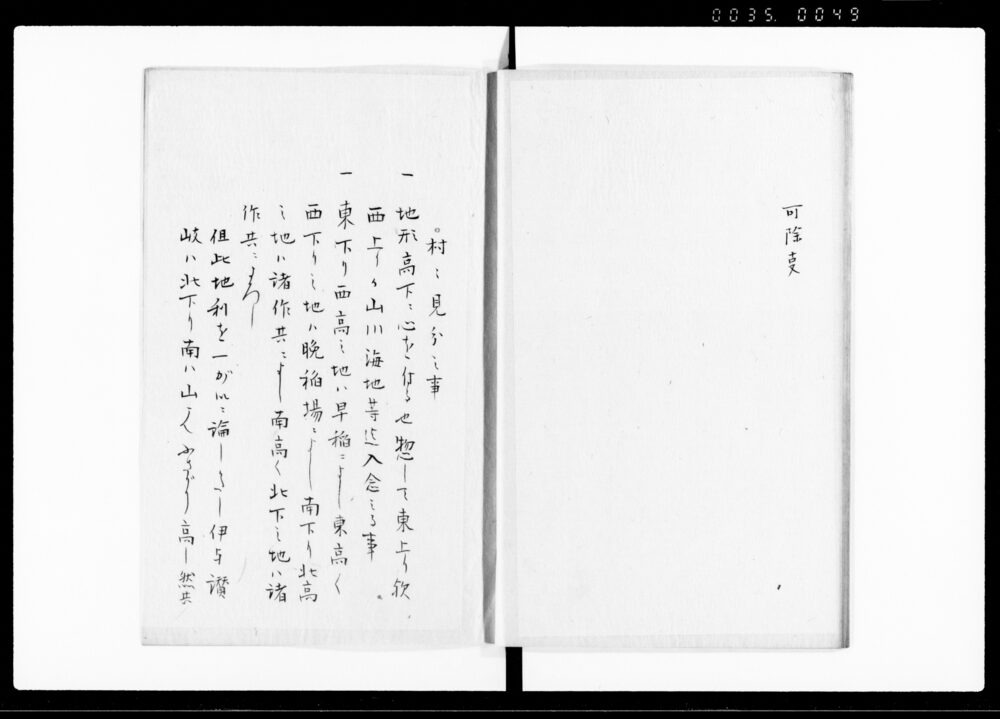 0035. 0049
可除事
村々見分之事
一 地形高下ニ心を付る也惣して東上り欤
西上りか山川海地等迄入念ミる事
一 東下り西高之地ハ早稲ニよし東高く
西下りし地ハ晩稲場ニよし南下り北高
之地ハ諸作共ニよし南高く北下之地ハ諸
作共ニよろし
但此地利を一がいニ論しかたし伊与讃
岐ハ北下り南ハ山 高し然共